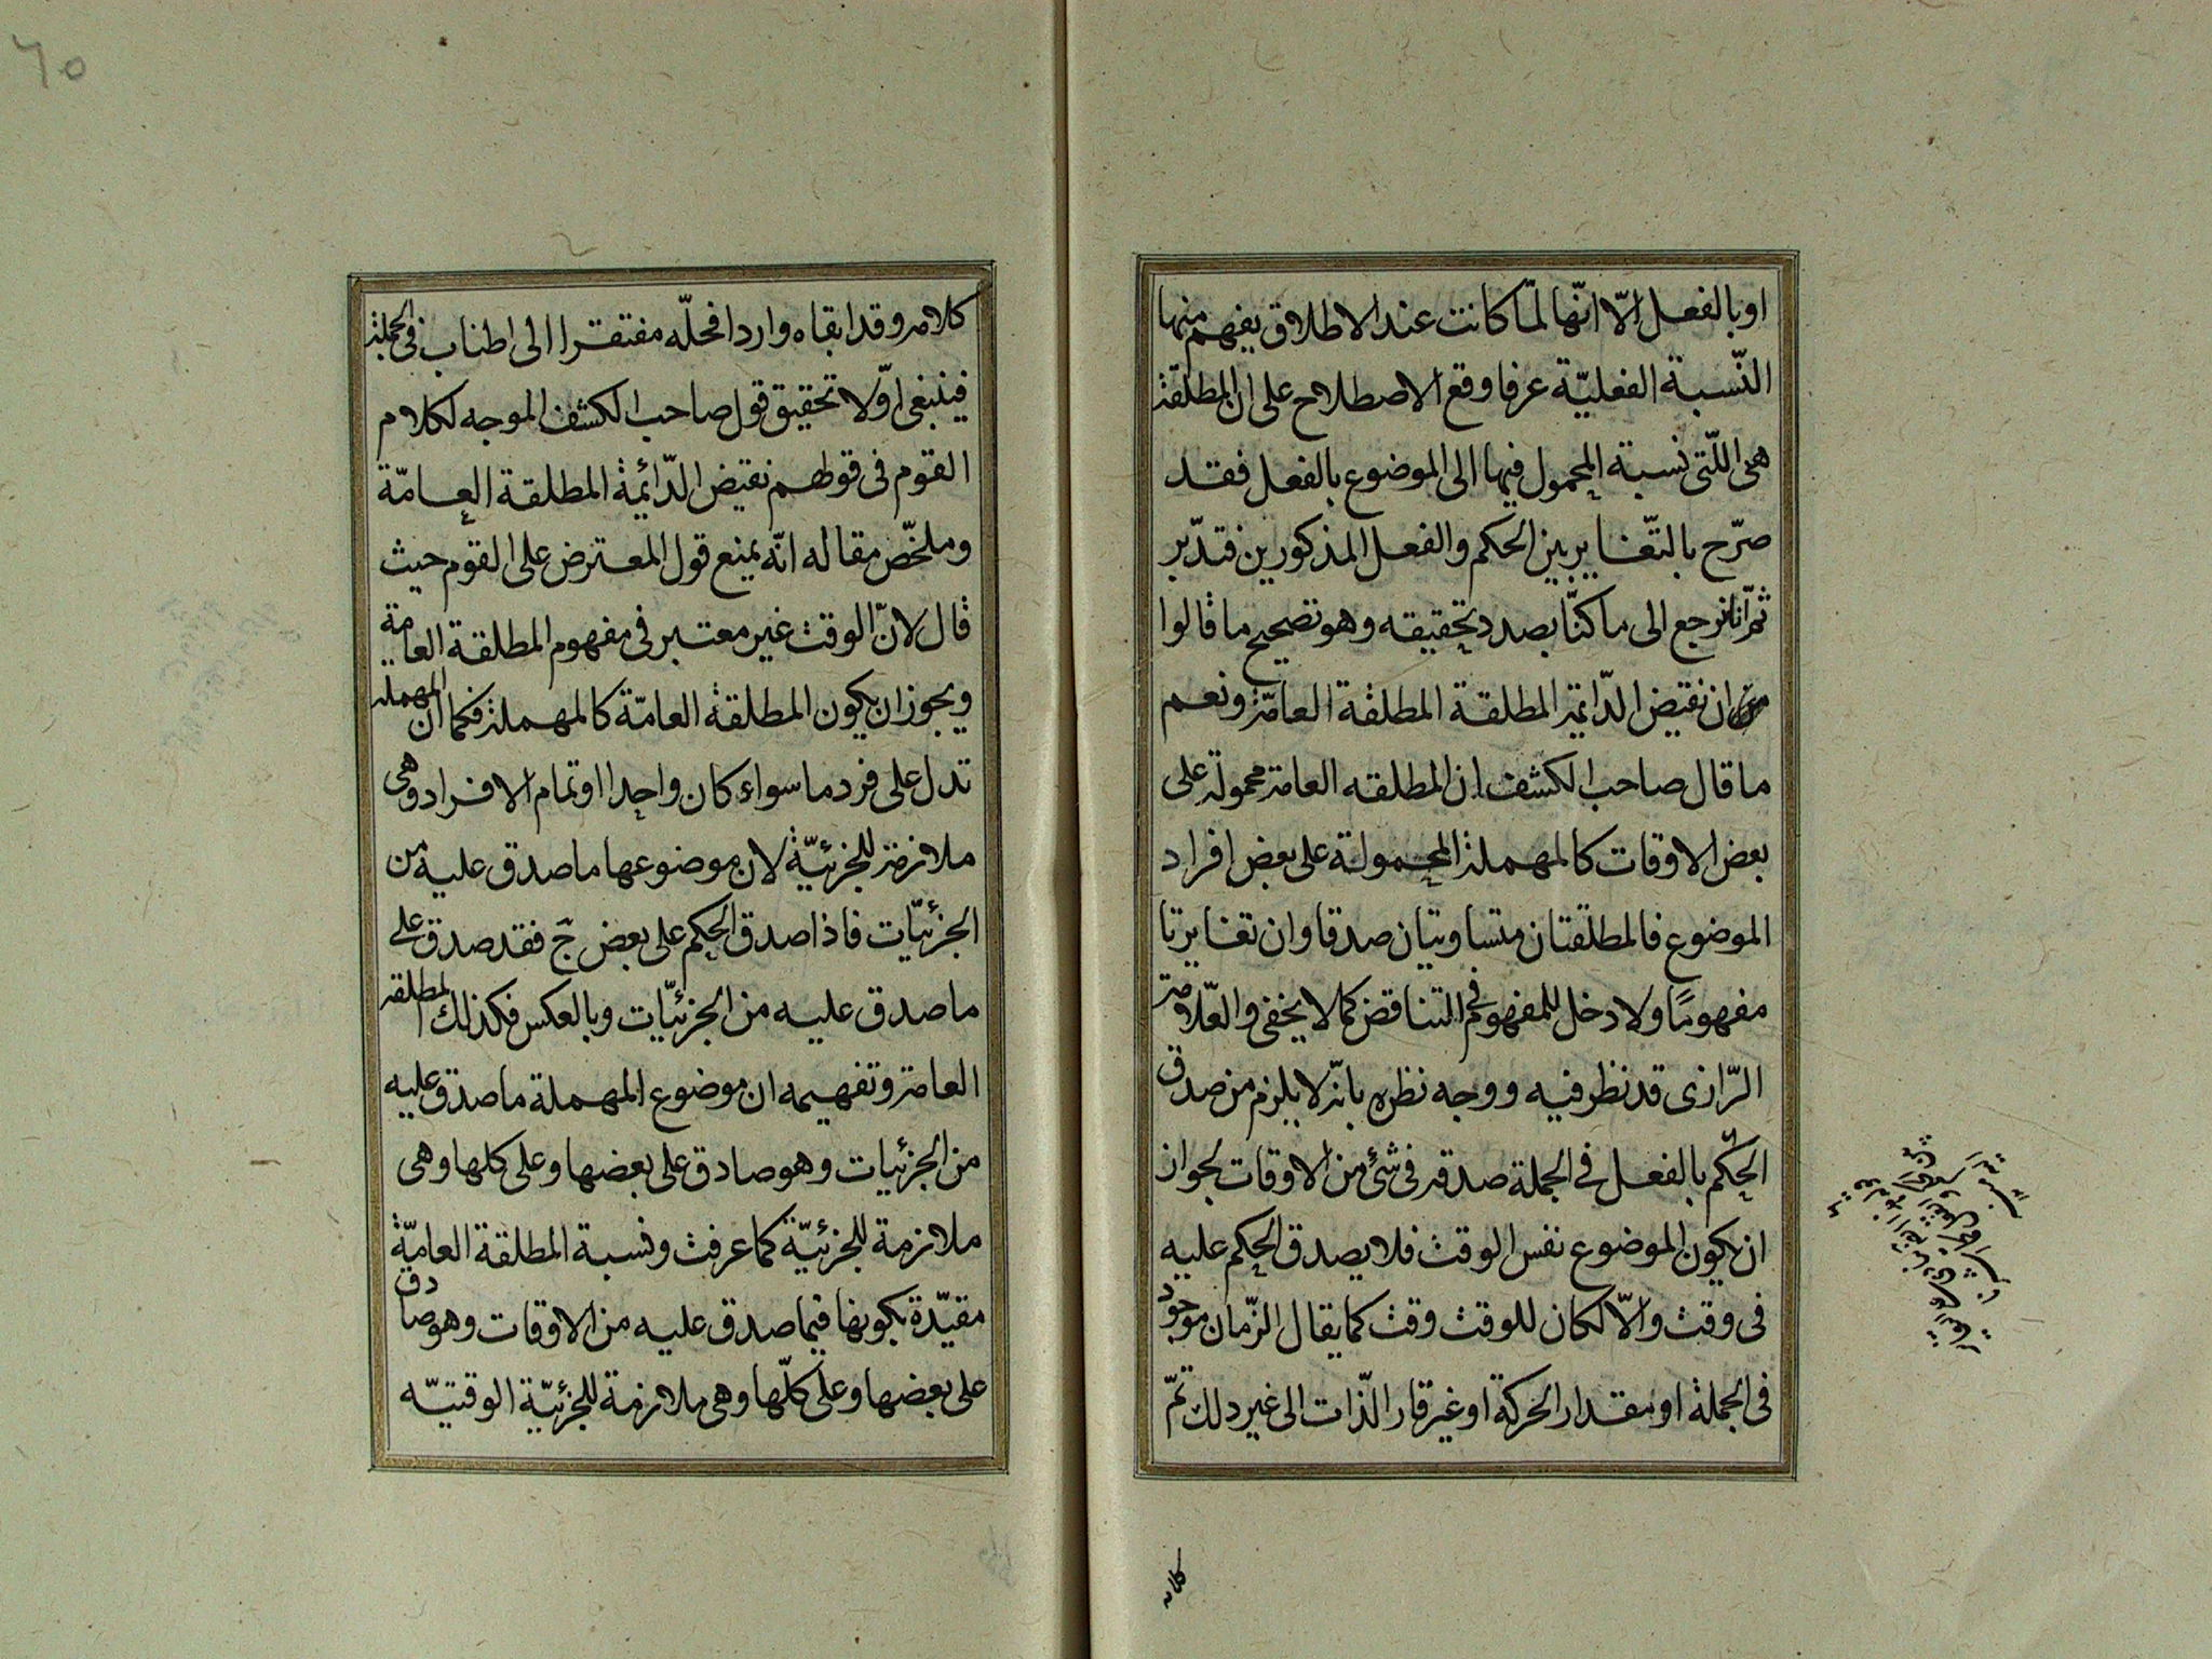 او بالفعل الّا انّها لمّا كانت عند الاطلاق يفهم منها
النّسبة الفعليّة عرفا وقع الاصطلاح على ان المطلقة
هى اللّتى نسبة المحمول فيها الى الموضوع بالفعل فقد
صرّح بالتّغاير بين الحكم والفعل المذكورين فتدّبر
ثمّ انا نرجع الى ما كنّا بصدد تحقيقه وهو تصحيح ما قالوا
من ان نقيض الدّائمة المطلقة المطلقة العامّة ونعم
ما قال صاحب الكشف ان المطلقه العامة محمولة على
بعض الاوقات كالمهملة المحمولة على بعض افراد
الموضوع فالمطلقتان متساويتان صدقا وان تغايرتا
مفهومًا ولا دخل للمفهوم فى التناقض كما لا يخفى والعّلامة
الرّازى قد نظر فيه ووجه نظره بانّه لا يلزم من صدق
الحكم بالفعل فى الجملة صدقه فى شئ من الاوقات لجواز
ان يكون الموضوع نفس الوقت فلا يصدق الحكم عليه
فى وقت والّا لكان للوقت وقت كما يقال الزّمان موجود
فى الجملة او مقدار الحركة او غير قار الّذات الى غير ذلك ثمّ
كلامه
٦٥
كلامه وقد ابقاه واردا فحلّه مفتقرا الى اطناب فى الجملة
فينبغى اوّلا تحقيق قول صاحب الكشف الموجه لكلام
القوم فى قولهم نقيض الدّائمة المطلقة العامّة
وملخّص مقاله انّه يمنع قول المعترض على القوم حيث
قال لانّ الوقت غير معتبر فى مفهوم المطلقة العامة
ويجوز ان يكون المطلقة العامّة كالمهملة فكما ان المهملة
تدل على فرد ما سواء كان واحدا او تمام الافراد وهى
ملازمة للجزئيّة لان موضوعها ما صدق عليه من
الجزئيّات فاذا صدق الحكم على بعض ج فقد صدق على
ما صدق عليه من الجزئيّات وبالعكس فكذلك المطلقة
العامة وتفهيمه ان موضوع المهملة ما صدق عليه
من الجزئيات وهو صادق على بعضها وعلى كلها وهى
ملازمة للجزئيّة كما عرفت ونسبة المطلقة العامّة
مقيّدة بكونها فيما صدق عليه من الاوقات وهو صادق
على بعضها وعلى كلّها وهى ملازمة للجزئيّة الوقتيّه